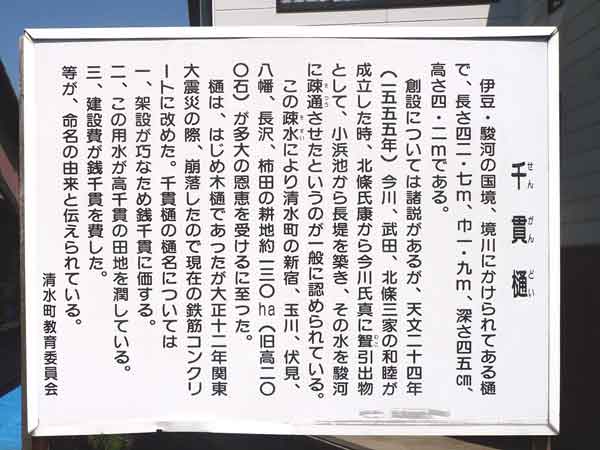 千貫樋
せん がん どい
伊豆・駿河の国境、境川にかけられてある樋
で、長さ四二・七m、巾一・九m、深さ四五cm、
高さ四・二mである。
創設については諸説があるが、天文二十四年
(一五五五年)今川、武田、北條三家の和睦が
成立した時、北條氏康から今川氏真に聟引出物
として、小浜池から長堤を築き、その水を駿河
に疎通させたというのが一般に認められている。
この疎水により清水町の新宿、玉川、伏見、
八幡、長沢、柿田の耕地約一三〇ha(旧高二〇
〇石)が多大の恩恵を受けるに至った。
樋は、はじめ木樋であったが大正十二年関東
大震災の際、崩落したので現在の鉄筋コンクリ
ートに改めた。千貫樋の樋名については
一、架設が巧なため銭千貫に価する。
二、この用水が高千貫の田地を潤している。
三、建設費が銭千貫を費した。
等が、命名の由来と伝えられている。
清水町教育委員会